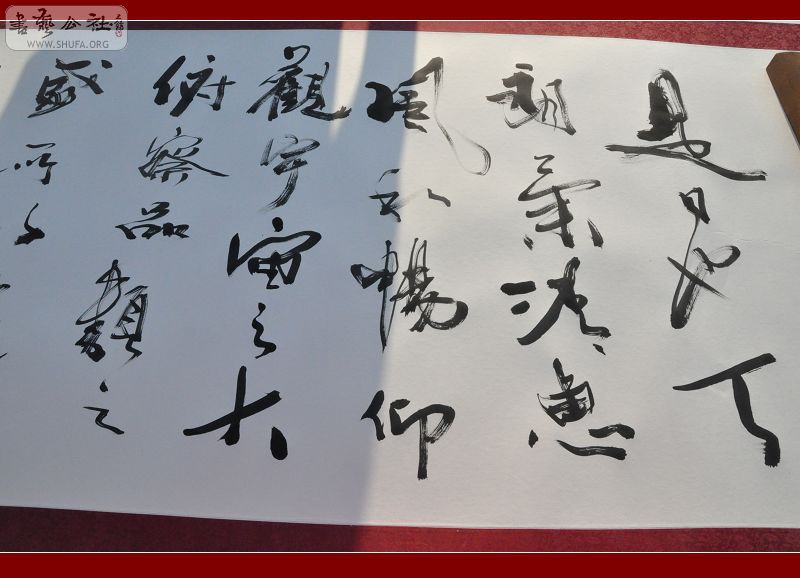 書藝公社
WWW.SHUFA.ORG
是日也天
朗氣清惠
風和暢仰
觀宇宙之大
俯察品類之
盛所以